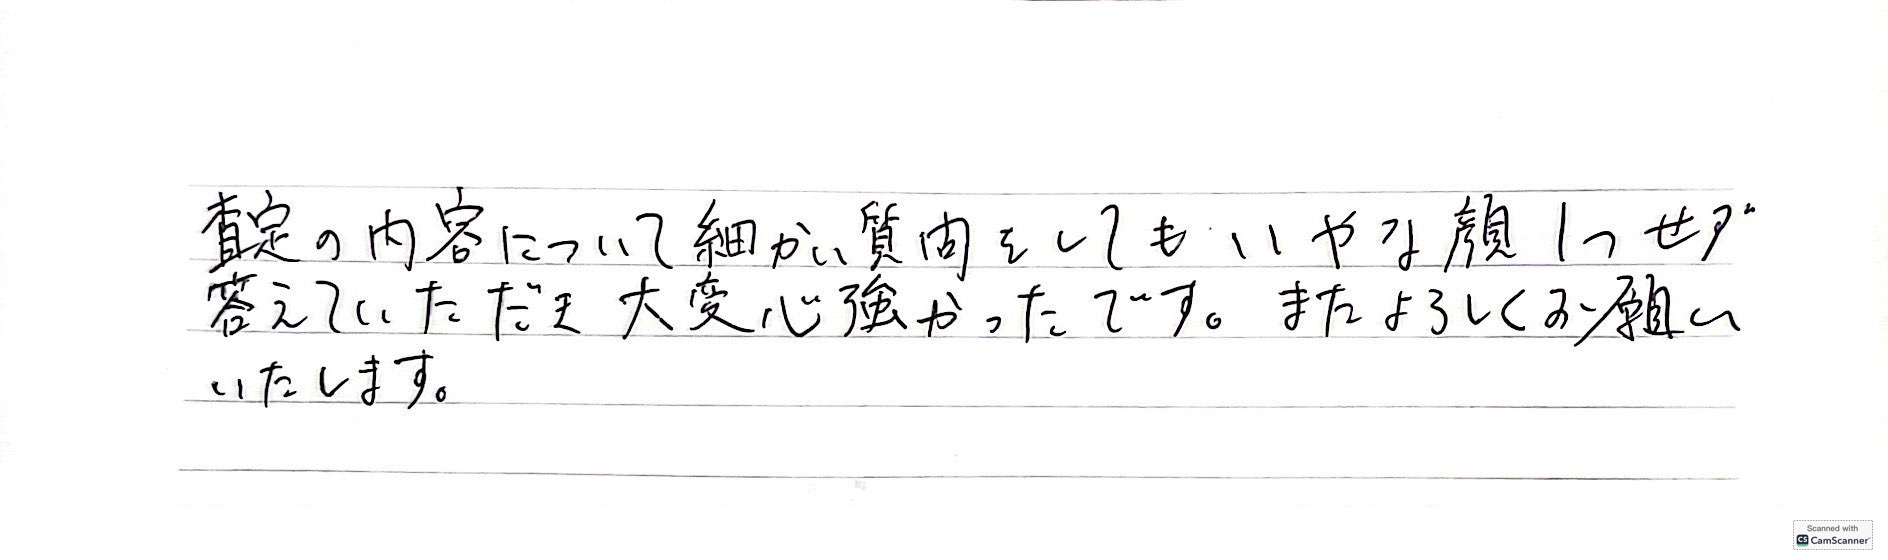 査定の内容について細かい質問をしてもいやな顔1つせず
答えていただき大変心強かったです。またよろしくお願い
いたします。
Scanned with
CS CamScanner